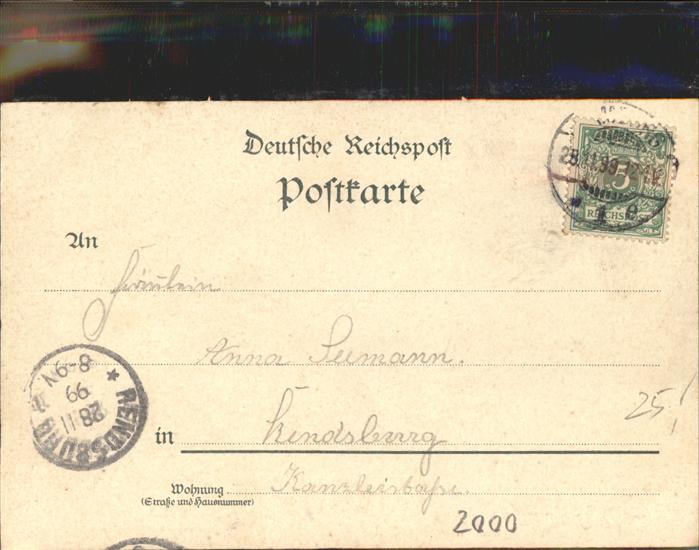 Deutsche Reichspost
Postkarte
5
REICHSPOST
28.11.99
An
Fräulein
Anna Seemann.
8-9N
99
28 11
RENDSBURG
25.!
in
Rendsburg
Wohnung
(Straße und Hausnummer)
2000